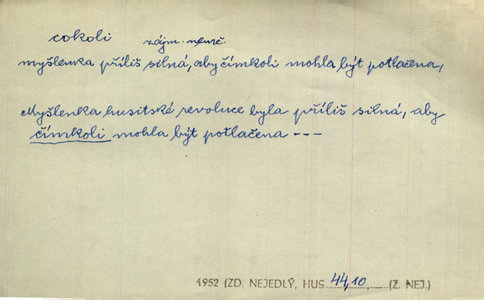 cokoli zájm. neurč.
myšlenka příliš silná, aby čímkoli mohla být potlačena,
Myšlenka husitské revoluce byla příliš silná, aby
čímkoli mohla být potlačena ---
1952 (ZD. NEJEDLÝ, HUS 44,10, (Z. NEJ.)